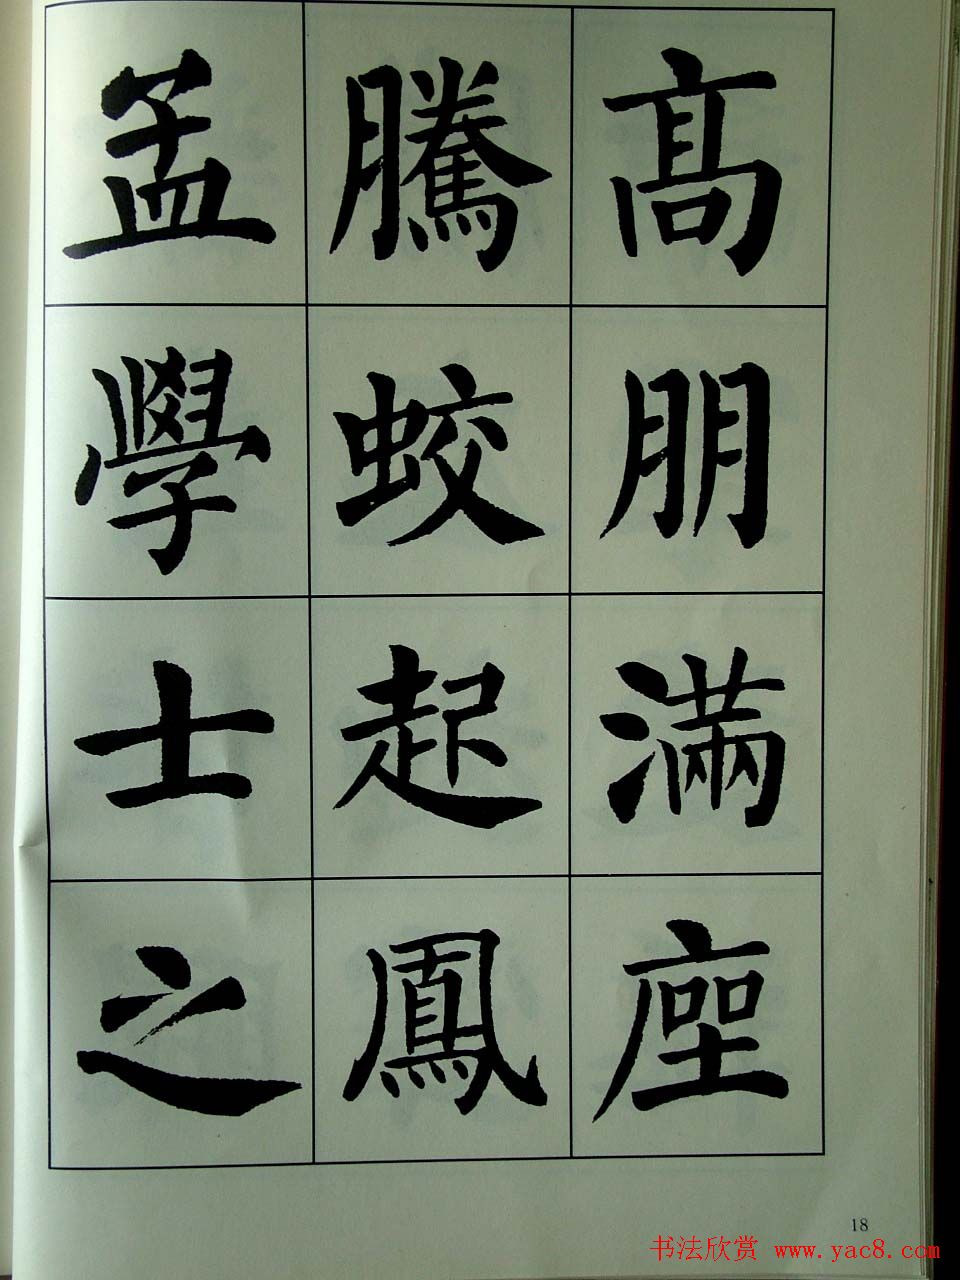 高朋滿座
騰蛟起鳳
孟學士之
18
书法欣赏 www.yac8.com